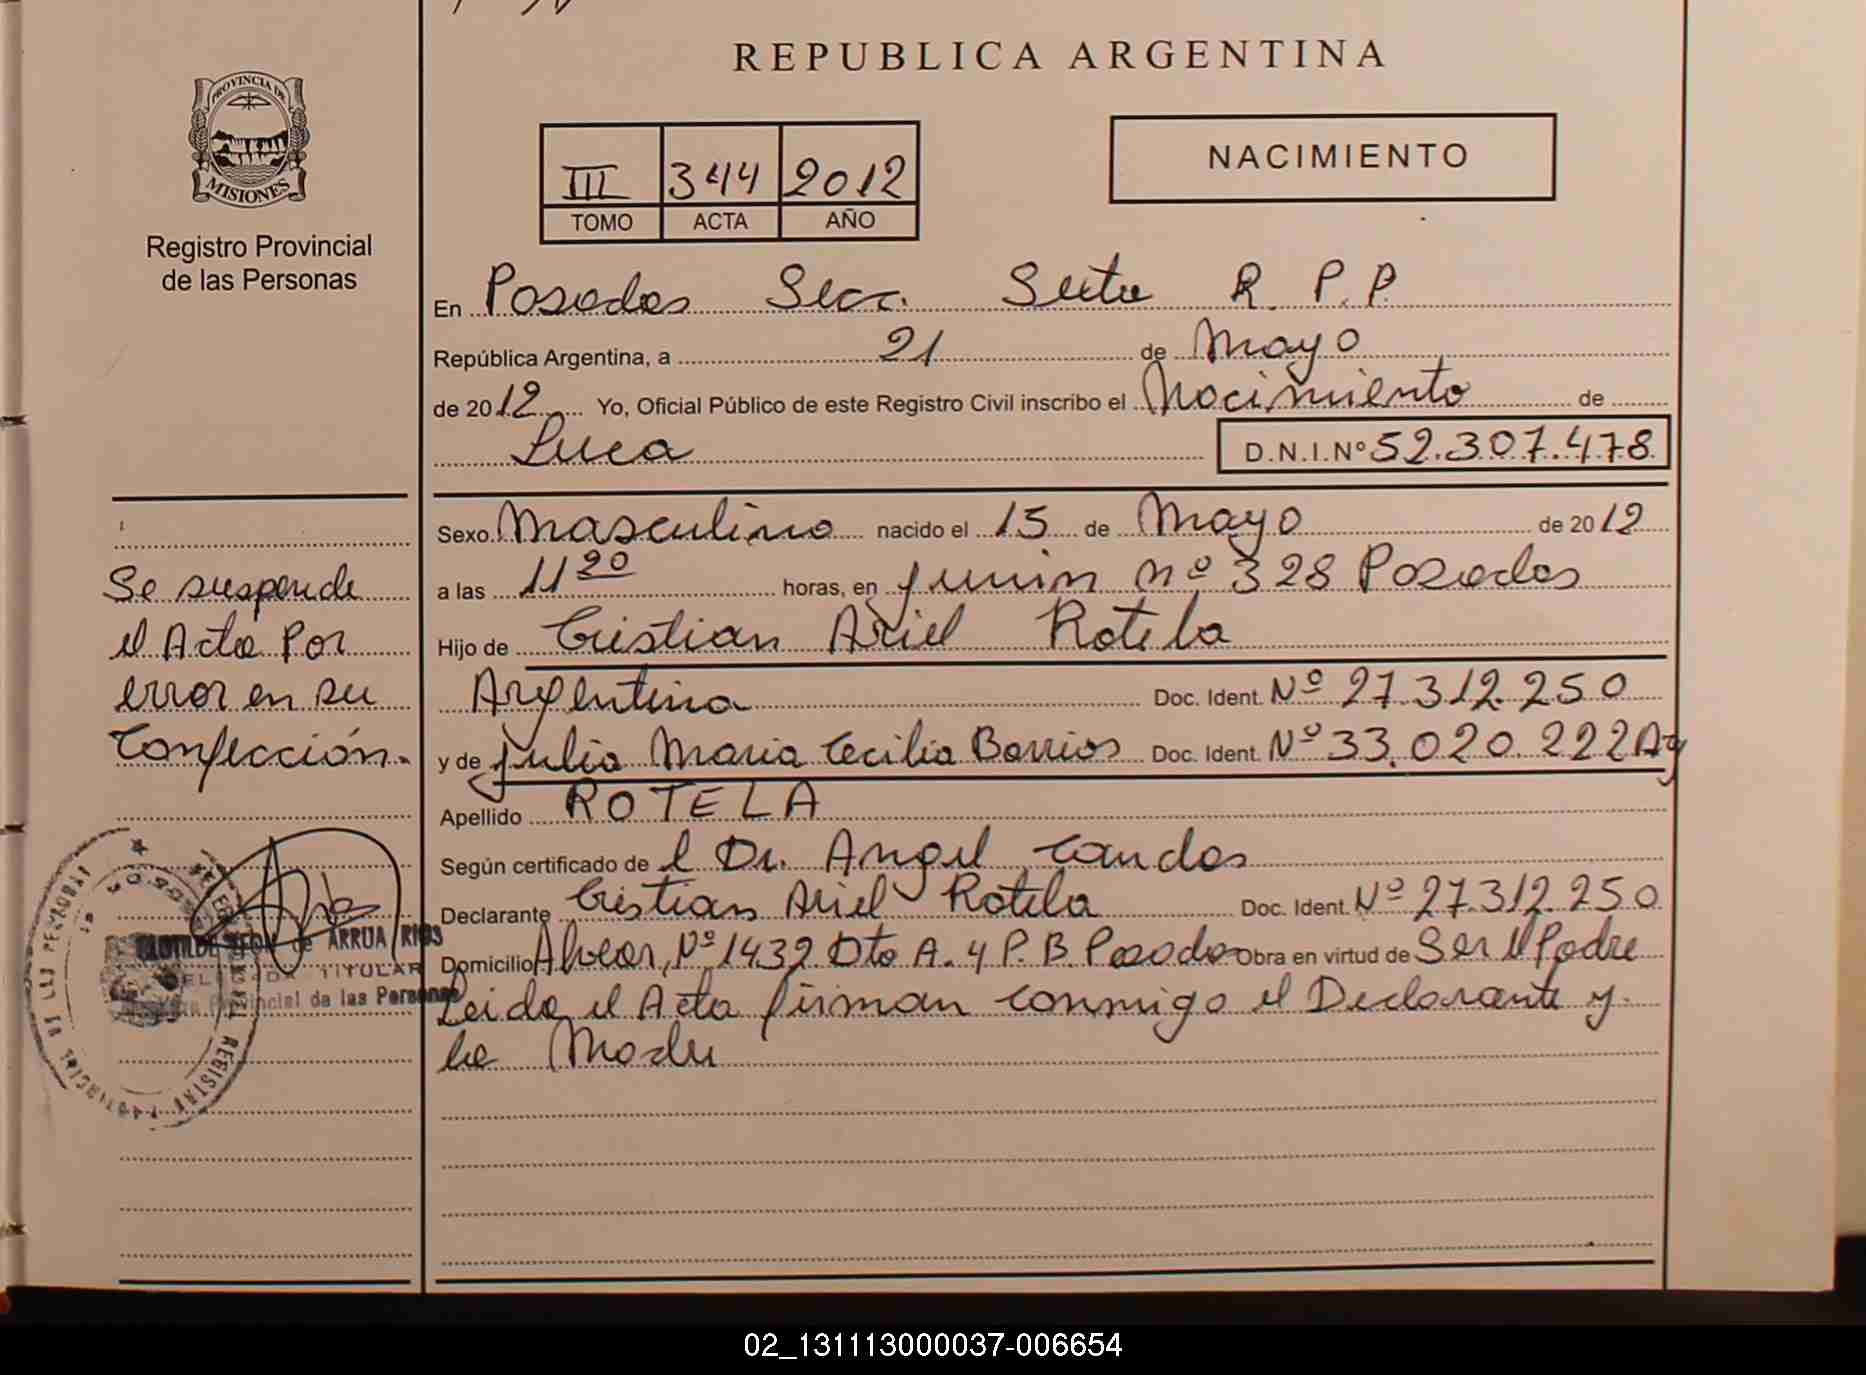 REPUBLICA ARGENTINA
PROVINCIA DE
MISIONES
Registro Provincial
de las Personas
NACIMIENTO
III 344 2012
TOMO ACTA AÑO
En Posadas Secc. Sexta R. P. P.
República Argentina, a 21 de Mayo
de 2012 Yo, Oficial Público de este Registro Civil inscribo el Nacimiento de
Luca D.N.I.Nº 52.307.478
Sexo Masculino nacido el 15 de Mayo de 2012
a las 11 20 horas, en Junin nº 328 Posadas
Hijo de Cristian Ariel Rotela
Argentina Doc. Ident. Nº 27.312.250
y de Julia Maria Cecilia Barrios Doc. Ident. Nº 33.020.222 Arg
Apellido ROTELA
Según certificado de el Dr. Angel
Declarante Cristian Ariel Rotela Doc. Ident. Nº 27.312.250
Domicilio Alvear, Nº 1432 Dto A. 4 P. B. Posadas Obra en virtud de Ser el Padre
Leida el Acta firman conmigo el Declarante y
la Madre
Se suspende
el Acta Por
error en su
Confección.
de ARRUA RIOS
TITULAR
Provincial de las Personas
02_131113000037-006654